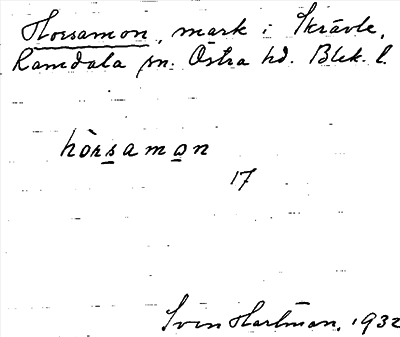 Horsamon, mark i Skrävle,
Ramdala sn. Östra hd. Blek. l.
hòrsamon
17
Sven Hartman, 1932